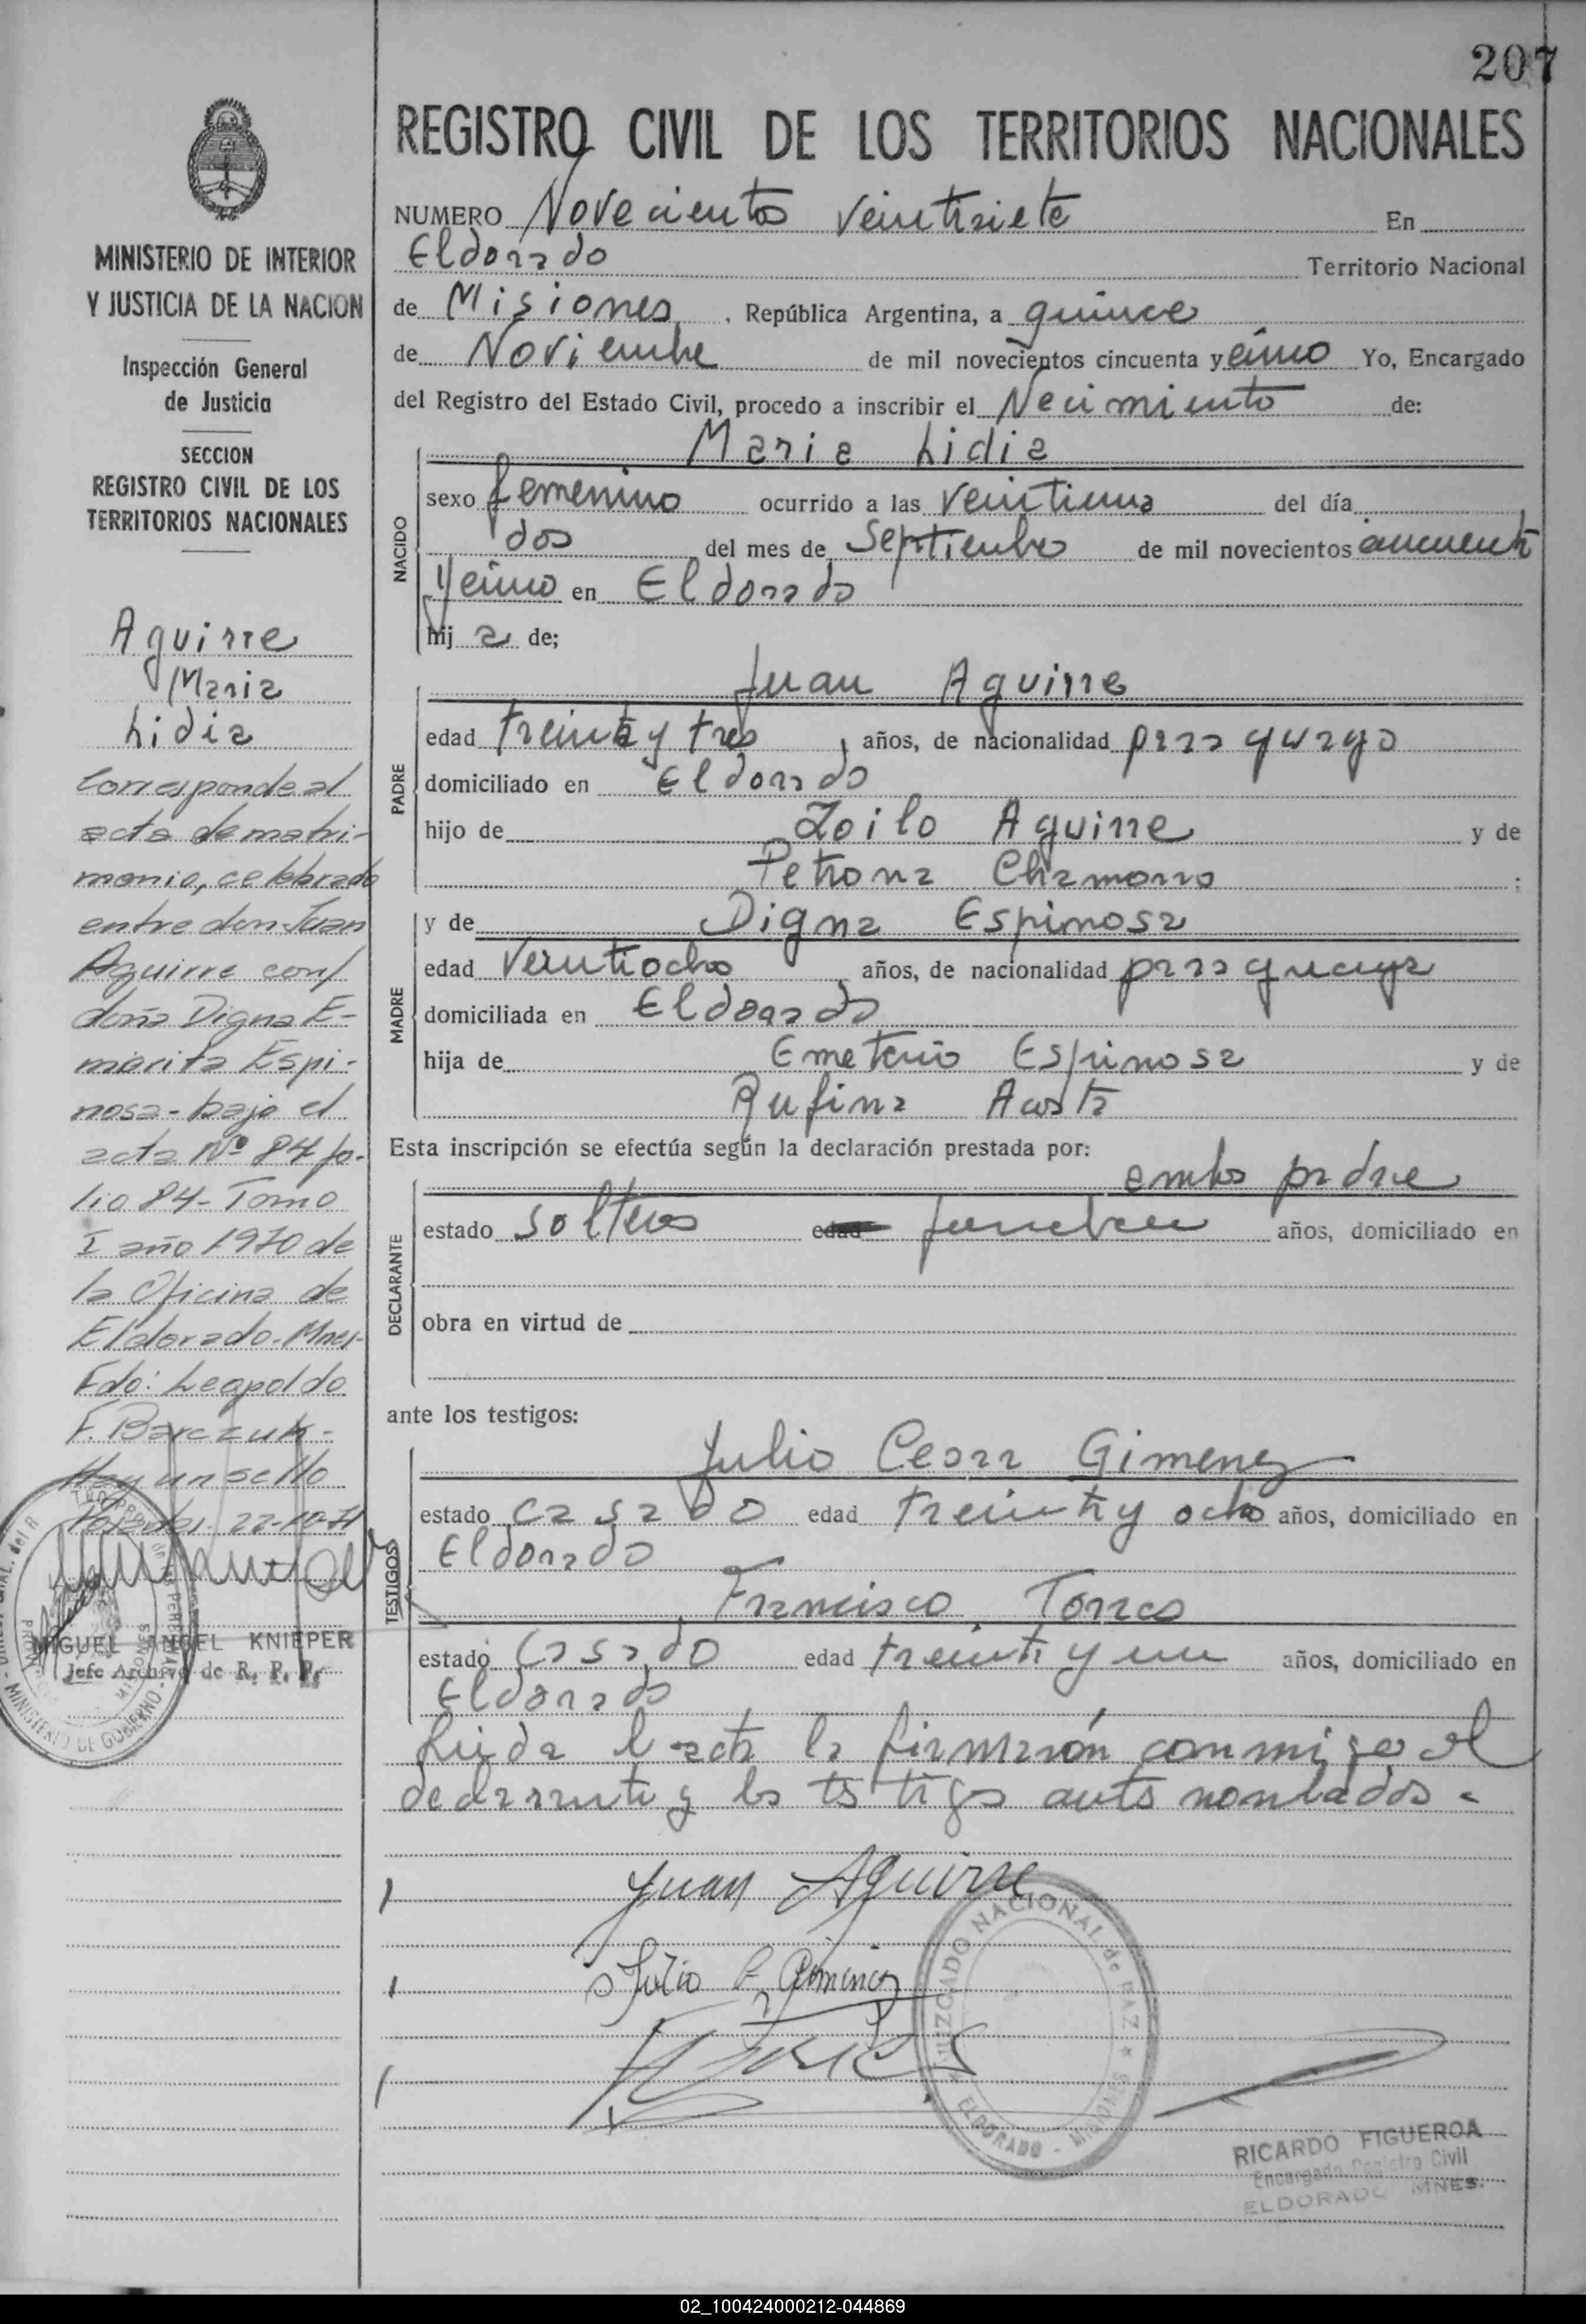 207
REGISTRO CIVIL DE LOS TERRITORIOS NACIONALES
NUMERO Novecientos veintisiete En
Eldorado Territorio Nacional
de Misiones, República Argentina, a quince
de Noviembre de mil novecientos cincuenta y cinco Yo, Encargado
del Registro del Estado Civil, procedo a inscribir el Necimiento de:
NACIDO
Maria Lidia
sexo femenino ocurrido a las veintiuna del día
dos del mes de Septiembre de mil novecientos cincuenta
y cinco en Eldorado
hij a de;
PADRE
Juan Aguirre
edad treinta y tres años, de nacionalidad paraguayo
domiciliado en Eldorado
hijo de Zoilo Aguirre y de
Petrona Chamorro ;
MADRE
y de Digna Espinosa
edad veintiocho años, de nacionalidad paraguaya
domiciliada en Eldorado
hija de Emeterio Espinosa y de
Rufina Acosta
Esta inscripción se efectúa según la declaración prestada por:
DECLARANTE
padre
estado solteros edad años, domiciliado en
obra en virtud de
ante los testigos:
TESTIGOS
Julio Cesar Gimenez
estado casado edad treinta y ocho años, domiciliado en
Eldorado
Francisco Torres
estado casado edad treinta y un años, domiciliado en
Eldorado
Leida el acta la firmaron conmigo el
declarante y los testigos antes nombrados.-
Juan Aguirre
Julio C. Gimenez
F Torres
JUZGADO NACIONAL de PAZ * ELDORADO - MISIONES
RICARDO FIGUEROA
Encargado Registro Civil
ELDORADO MNES.
MINISTERIO DE INTERIOR
Y JUSTICIA DE LA NACION
Inspección General
de Justicia
SECCION
REGISTRO CIVIL DE LOS
TERRITORIOS NACIONALES
Aguirre
Maria
Lidia
Corresponde al
acta de matri-
monio, celebrado
entre don Juan
Aguirre con/
doña Digna E-
mérita Espi-
nosa - bajo el
acta Nº 84 fo-
lio 84 - Tomo
I año 1970 de
la Oficina de
Eldorado - Mnes-
Fdo: Leopoldo
F. Barczuk -
Hay un sello
Posadas 22-10-71
MIGUEL ANGEL KNIEPER
Jefe Archivo de R. P. P.
MINISTERIO DE GOBIERNO
02_100424000212-044869